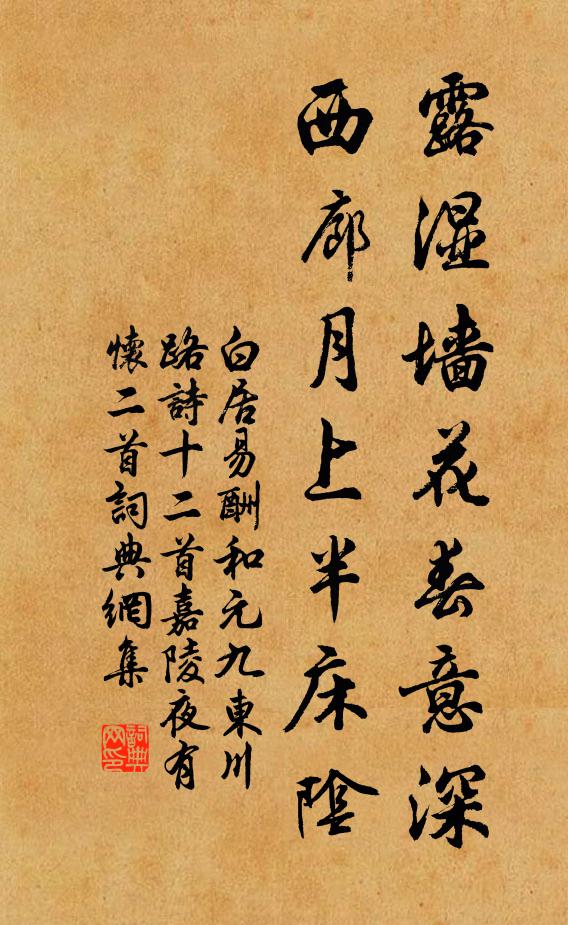 露湿墙花春意深
西廊月上半床陰
白居易酬和元九東川
路詩十二首嘉陵夜有
懷二首詞典網集
詞典
网印